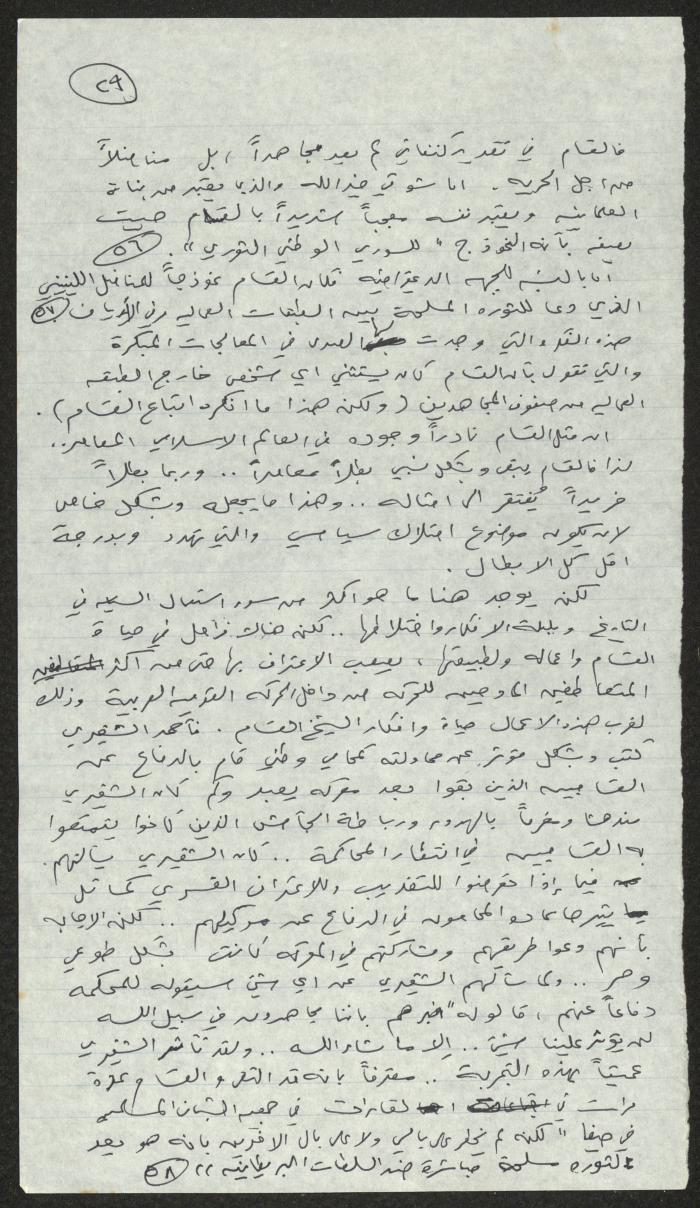 ٢٩
فالقسام في تقدير كنفاني لم يعد مجاهداً، بل مناضلاً
من اجل الحرية. اما شوقي خيرالله والذي يعتبر من بناة
العلمانية ويعتبر نفسه معجباً شديداً بالقسام حيث
يصفه بأنه النموذج "للسوري الوطني الثوري". ٥٦
اما بالنسبة للجبهه الديمقراطية فكان القسام نموذجاً للمناضل اللينيني
الذي دعا للثوره المسلحة بين الطبقات العماليه وفي الأرياف ٥٧
هذه النقد والتي وجدت لها الصدى في المعالجات المبكرة
والتي تقول بأن القسام كان يستثني اي شخص خارج الطبقه
العماليه من صفوف المجاهدين (ولكن هذا ما انكره اتباع القسام).
ان مثل القسام نادراً وجوده في العالم الاسلامي المعاصر..
لذا فالقسام يبقى وبشكل نسبي بطلاً معاصراً.. وربما بطلاً
فريداً يُفتقر الى امثاله.. وهذا ما يجعله وبشكل خاص
لان يكون موضوع امتلاك سياسي والتي تهدد وبدرجة
اقل كل الابطال.
لكن يوجد هنا ما هو اكثر من سوء استعمال السيء في
التاريخ وبلبلة الافكار واختلاطها.. لكن هناك فواصل في حياة
القسام واعماله ولطبيعتها، يصعب الاعتراف بها حتى من اكثر
المتعاطفين الماديين للحركه من داخل الحركه القوميه العربية وذلك
لغرب هذه الاعمال حياة وافكار الشيخ القسام. فأحمد الشقيري
كتب وبشكل مؤثر عن محاولته كمحامي وطني قام بالدفاع عن
القساميين الذين بقوا بعد معركه يعبد وكم كان الشقيري
مندهشاً ومغرماً بالهدوء ورباطة الجأش الذين كانوا يتمتعوا
به القساميين في انتظار المحاكمة.. كان الشقيري يسألهم
فيما إذا تعرضوا للتعذيب وللاعتراف القسري كمسائل
يثيرها عادة المحامون في الدفاع عن موكليهم.. لكن الاجابه
بأنهم وعوا طريقهم ومشاركتهم في المعركه كانت بشكل طوعي
وحر.. ولما سألهم الشقيري عن اي شيئ سيقوله للمحكمه
دفاعاً عنهم، قالوا له "اخبرهم باننا مجاهدون في سبيل الله
لن يؤثر علينا شيئ.. إلا ما شاء الله.. ولقد تأثر الشقيري
عميقاً بهذه التجربة.. معترفاً بانه قد التقى والقسام عدة
مرات في لقاءات في جمعيه الشبان المسلمين
في حيفا "لكنه لم يخطر على بالي ولا على بال الآخرين بانه هو يعد
لثوره مسلحة مباشرة ضد السلطات البريطانيه" ٥٨